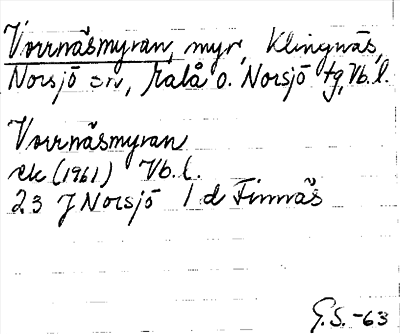 Vorrnäsmyran, myr, Klingnäs,
Norsjö sn, Malå o. Norsjö tg, Vb.l.
Vorrnäsmyran
ek (1961) Vb.l.
23 J Norsjö 1 d Finnäs
G.S. -63